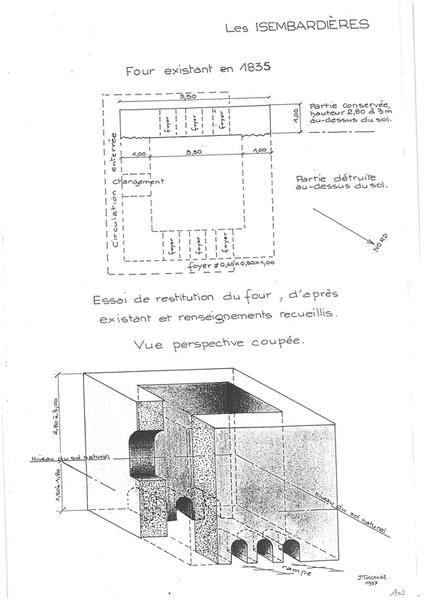 Les ISEMBARDIÈRES
Four existant en 1835
5,50
foyer
foyer
foyer
1,00
Partie conservée,
hauteur 2,80 à 3 m
au-dessus du sol.
1,00
3,50
1,00
Circulation enterrée
chargement
Partie détruite
au-dessus du sol.
NORD
foyer
foyer
foyer
foyer ≠ 0,60×0,80×1,00
Essai de restitution du four, d'après
existant et renseignements recueillis.
Vue perspective coupée.
2,80 à 3,00
Niveau du sol naturel
1,50 à 1,80
Niveau du sol naturel
rampe
J.THOMAS
1987